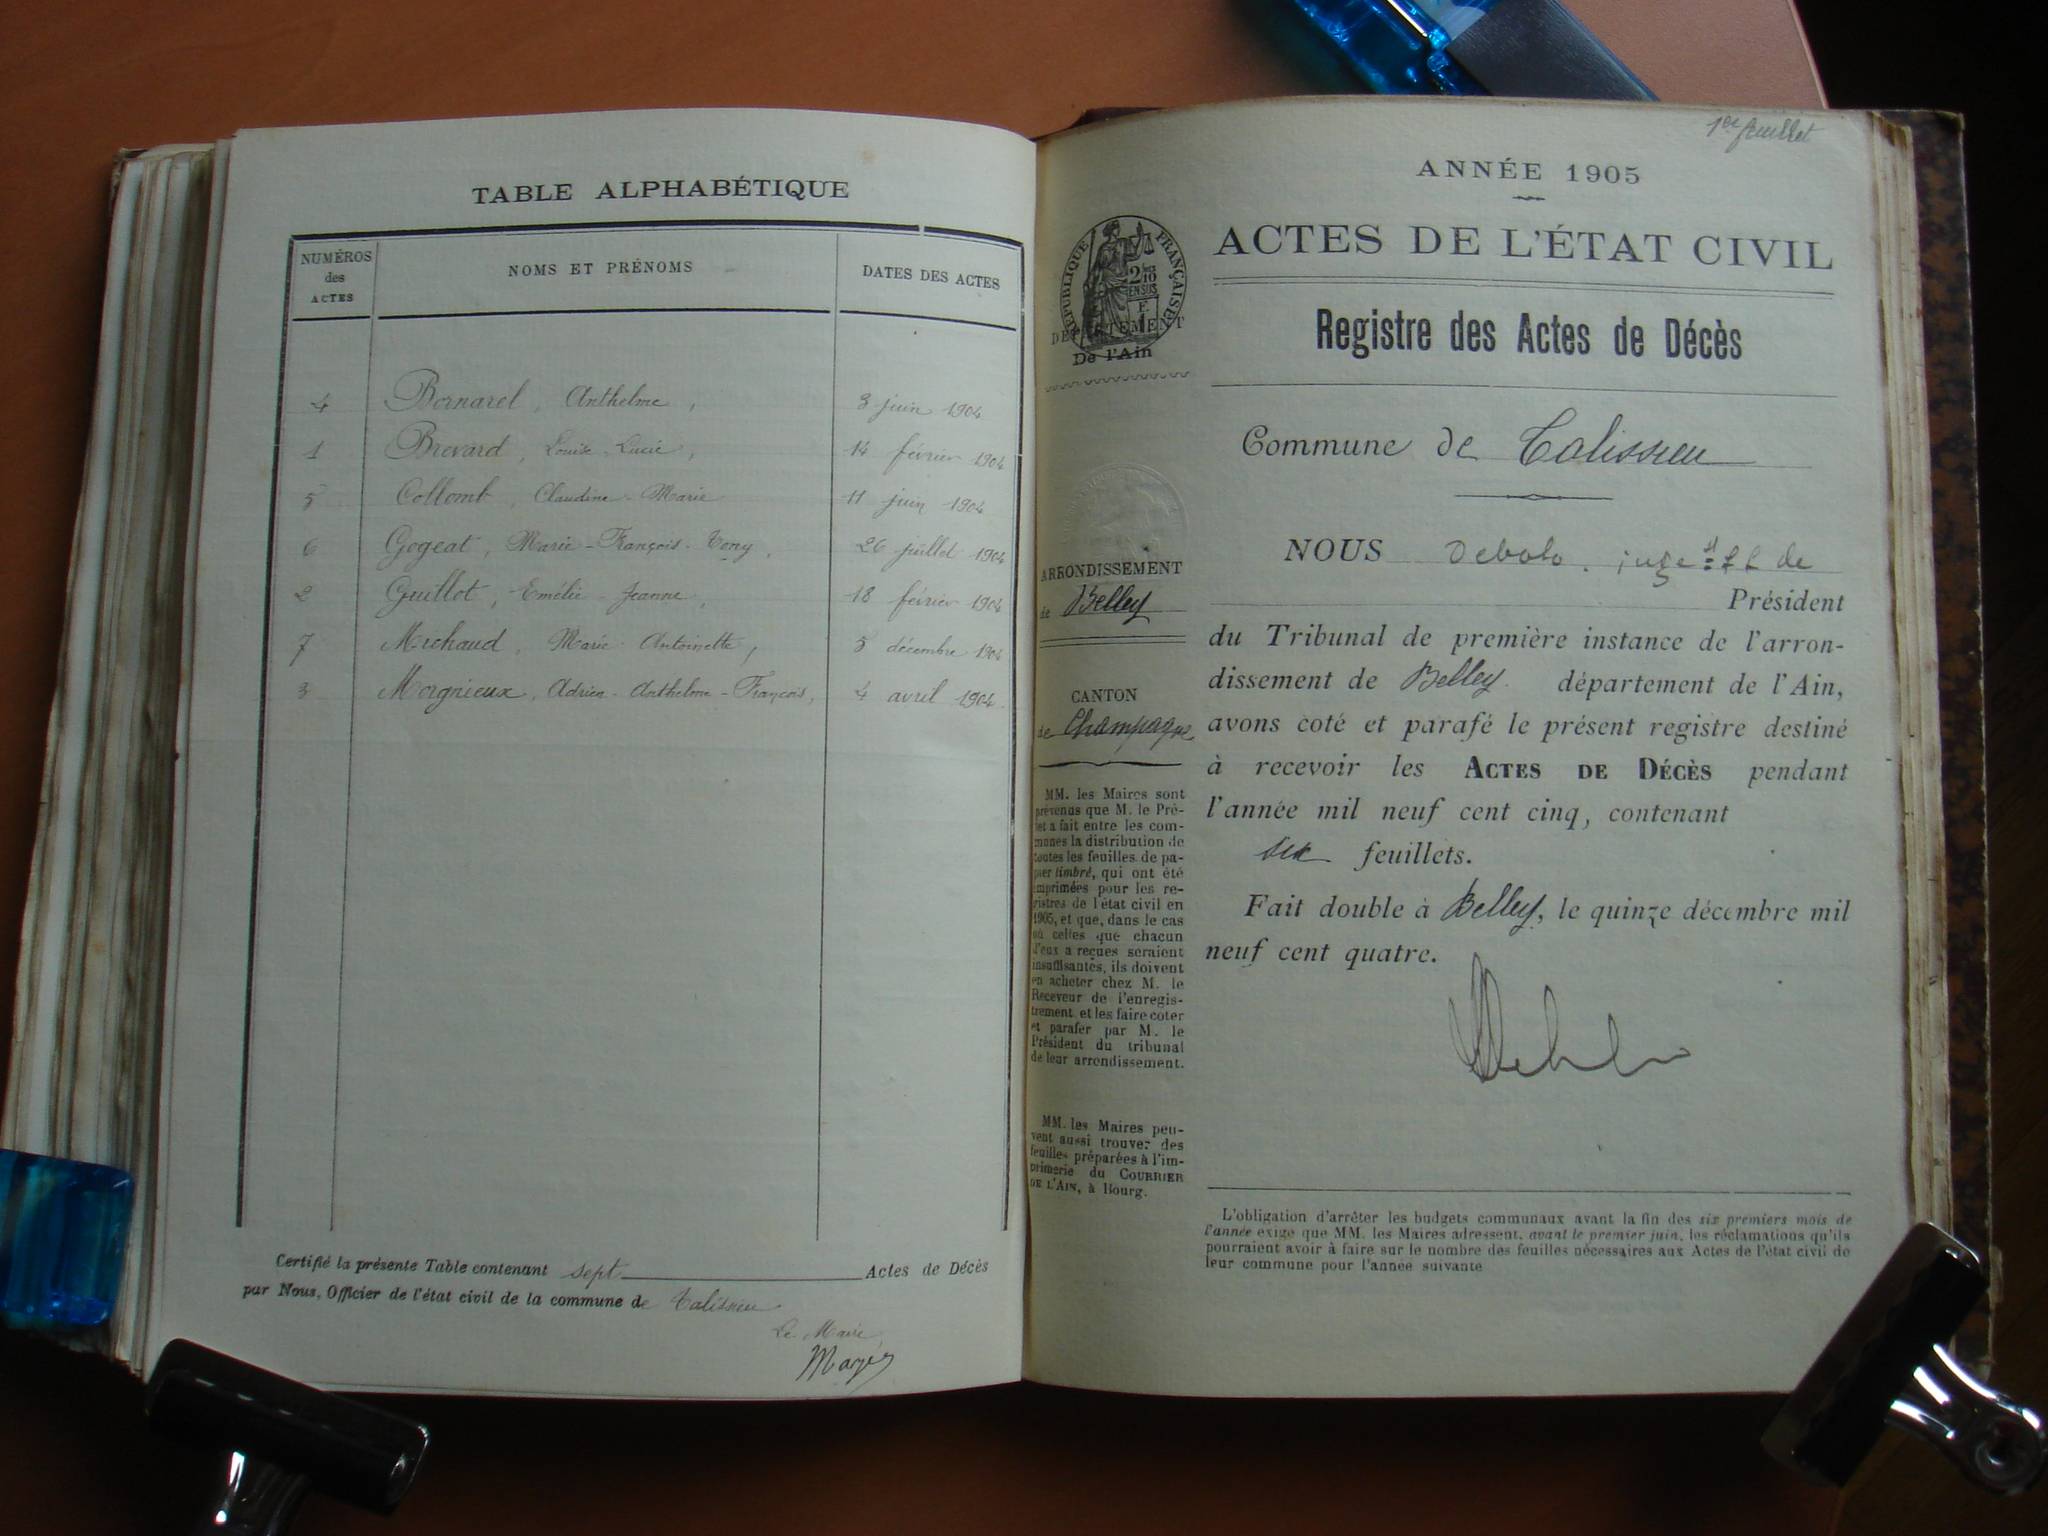 TABLE ALPHABÉTIQUE
NUMÉROS des ACTES
NOMS ET PRÉNOMS
DATES DES ACTES
4 Bornarel, Anthelme, 3 juin 1904
1 Brevard, Louise-Lucie, 14 février 1904
5 Collomb, Claudine-Marie 11 juin 1904
6 Gogeat, Marie-François-Tony, 26 juillet 1904
2 Guillot, Emélie-Jeanne, 18 février 1904
7 Michaud, Marie Antoinette, 5 décembre 1904
3 Morgnieux, Adrien-Anthelme-François, 4 avril 1904
Certifié la présente Table contenant sept Actes de Décès
par Nous, Officier de l'état civil de la commune de Talissieu
Le Maire,
1er feuillet
ANNÉE 1905
ACTES DE L'ÉTAT CIVIL
Registre des Actes de Décès
Commune de Talissieu
NOUS juge de
Président
du Tribunal de première instance de l'arron-
dissement de Belley département de l'Ain,
avons coté et parafé le présent registre destiné
à recevoir les ACTES DE DÉCÈS pendant
l'année mil neuf cent cinq, contenant
six feuillets.
Fait double à Belley, le quinze décembre mil
neuf cent quatre.
L'obligation d'arrêter les budgets communaux avant la fin des six premiers mois de
l'année exige que MM. les Maires adressent, avant le premier juin, les réclamations qu'ils
pourraient avoir à faire sur le nombre des feuilles nécessaires aux Actes de l'état civil de
leur commune pour l'année suivante
RÉPUBLIQUE FRANÇAISE
2
10
EN SUS
DÉPARTEMENT
De l'Ain
ARRONDISSEMENT
de Belley
CANTON
de Champagne
MM. les Maires sont
prévenus que M. le Pré-
fet a fait entre les com-
munes la distribution de
toutes les feuilles de pa-
pier timbré, qui ont été
imprimées pour les re-
gistres de l'état civil en
1905, et que, dans le cas
où celles que chacun
d'eux a reçues seraient
insuffisantes, ils doivent
en acheter chez M. le
Receveur de l'enregis-
trement et les faire coter
et parafer par M. le
Président du tribunal
de leur arrondissement.
MM. les Maires peu-
vent aussi trouver des
feuilles préparées à l'im-
primerie du COURRIER
DE L'AIN, à Bourg.